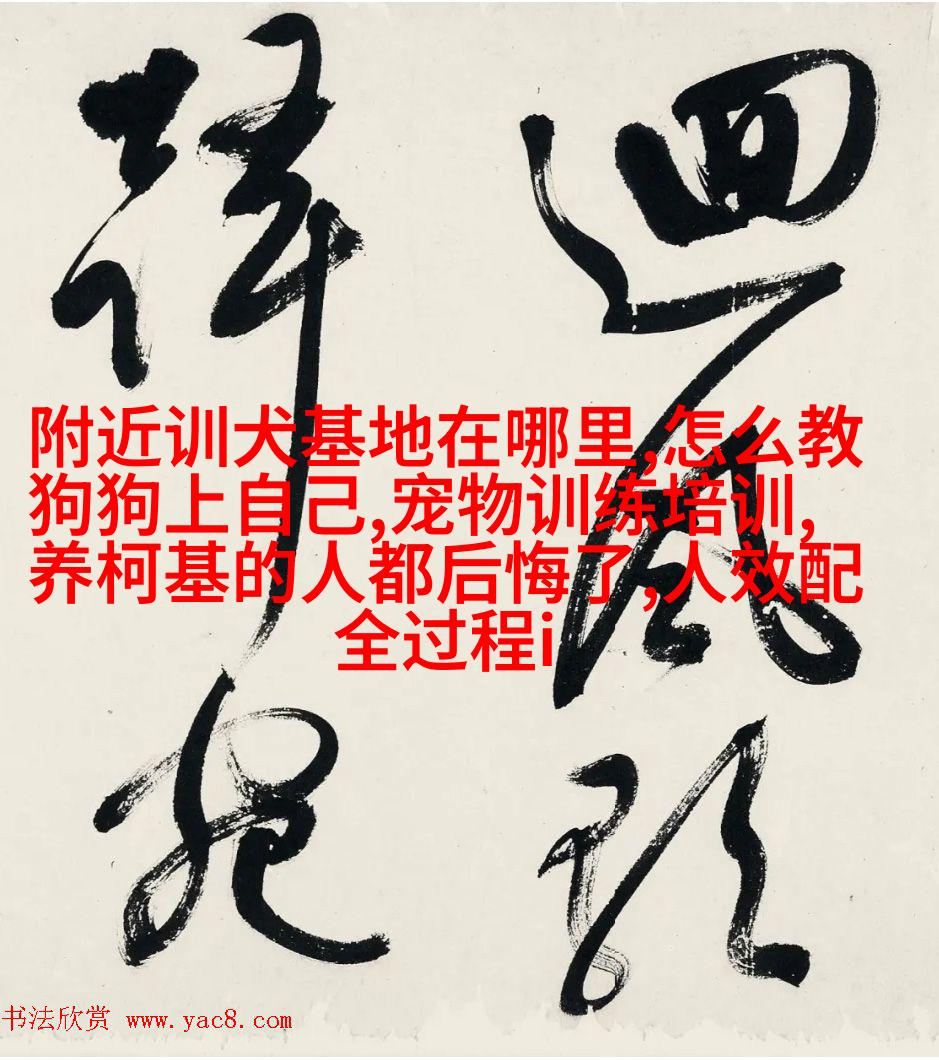 迴風
附近训犬基地在哪里,怎么教
狗狗上自己,宠物训练培训,
养柯基的人都后悔了,人效配
全过程i
书法欣赏 www.yac8.com